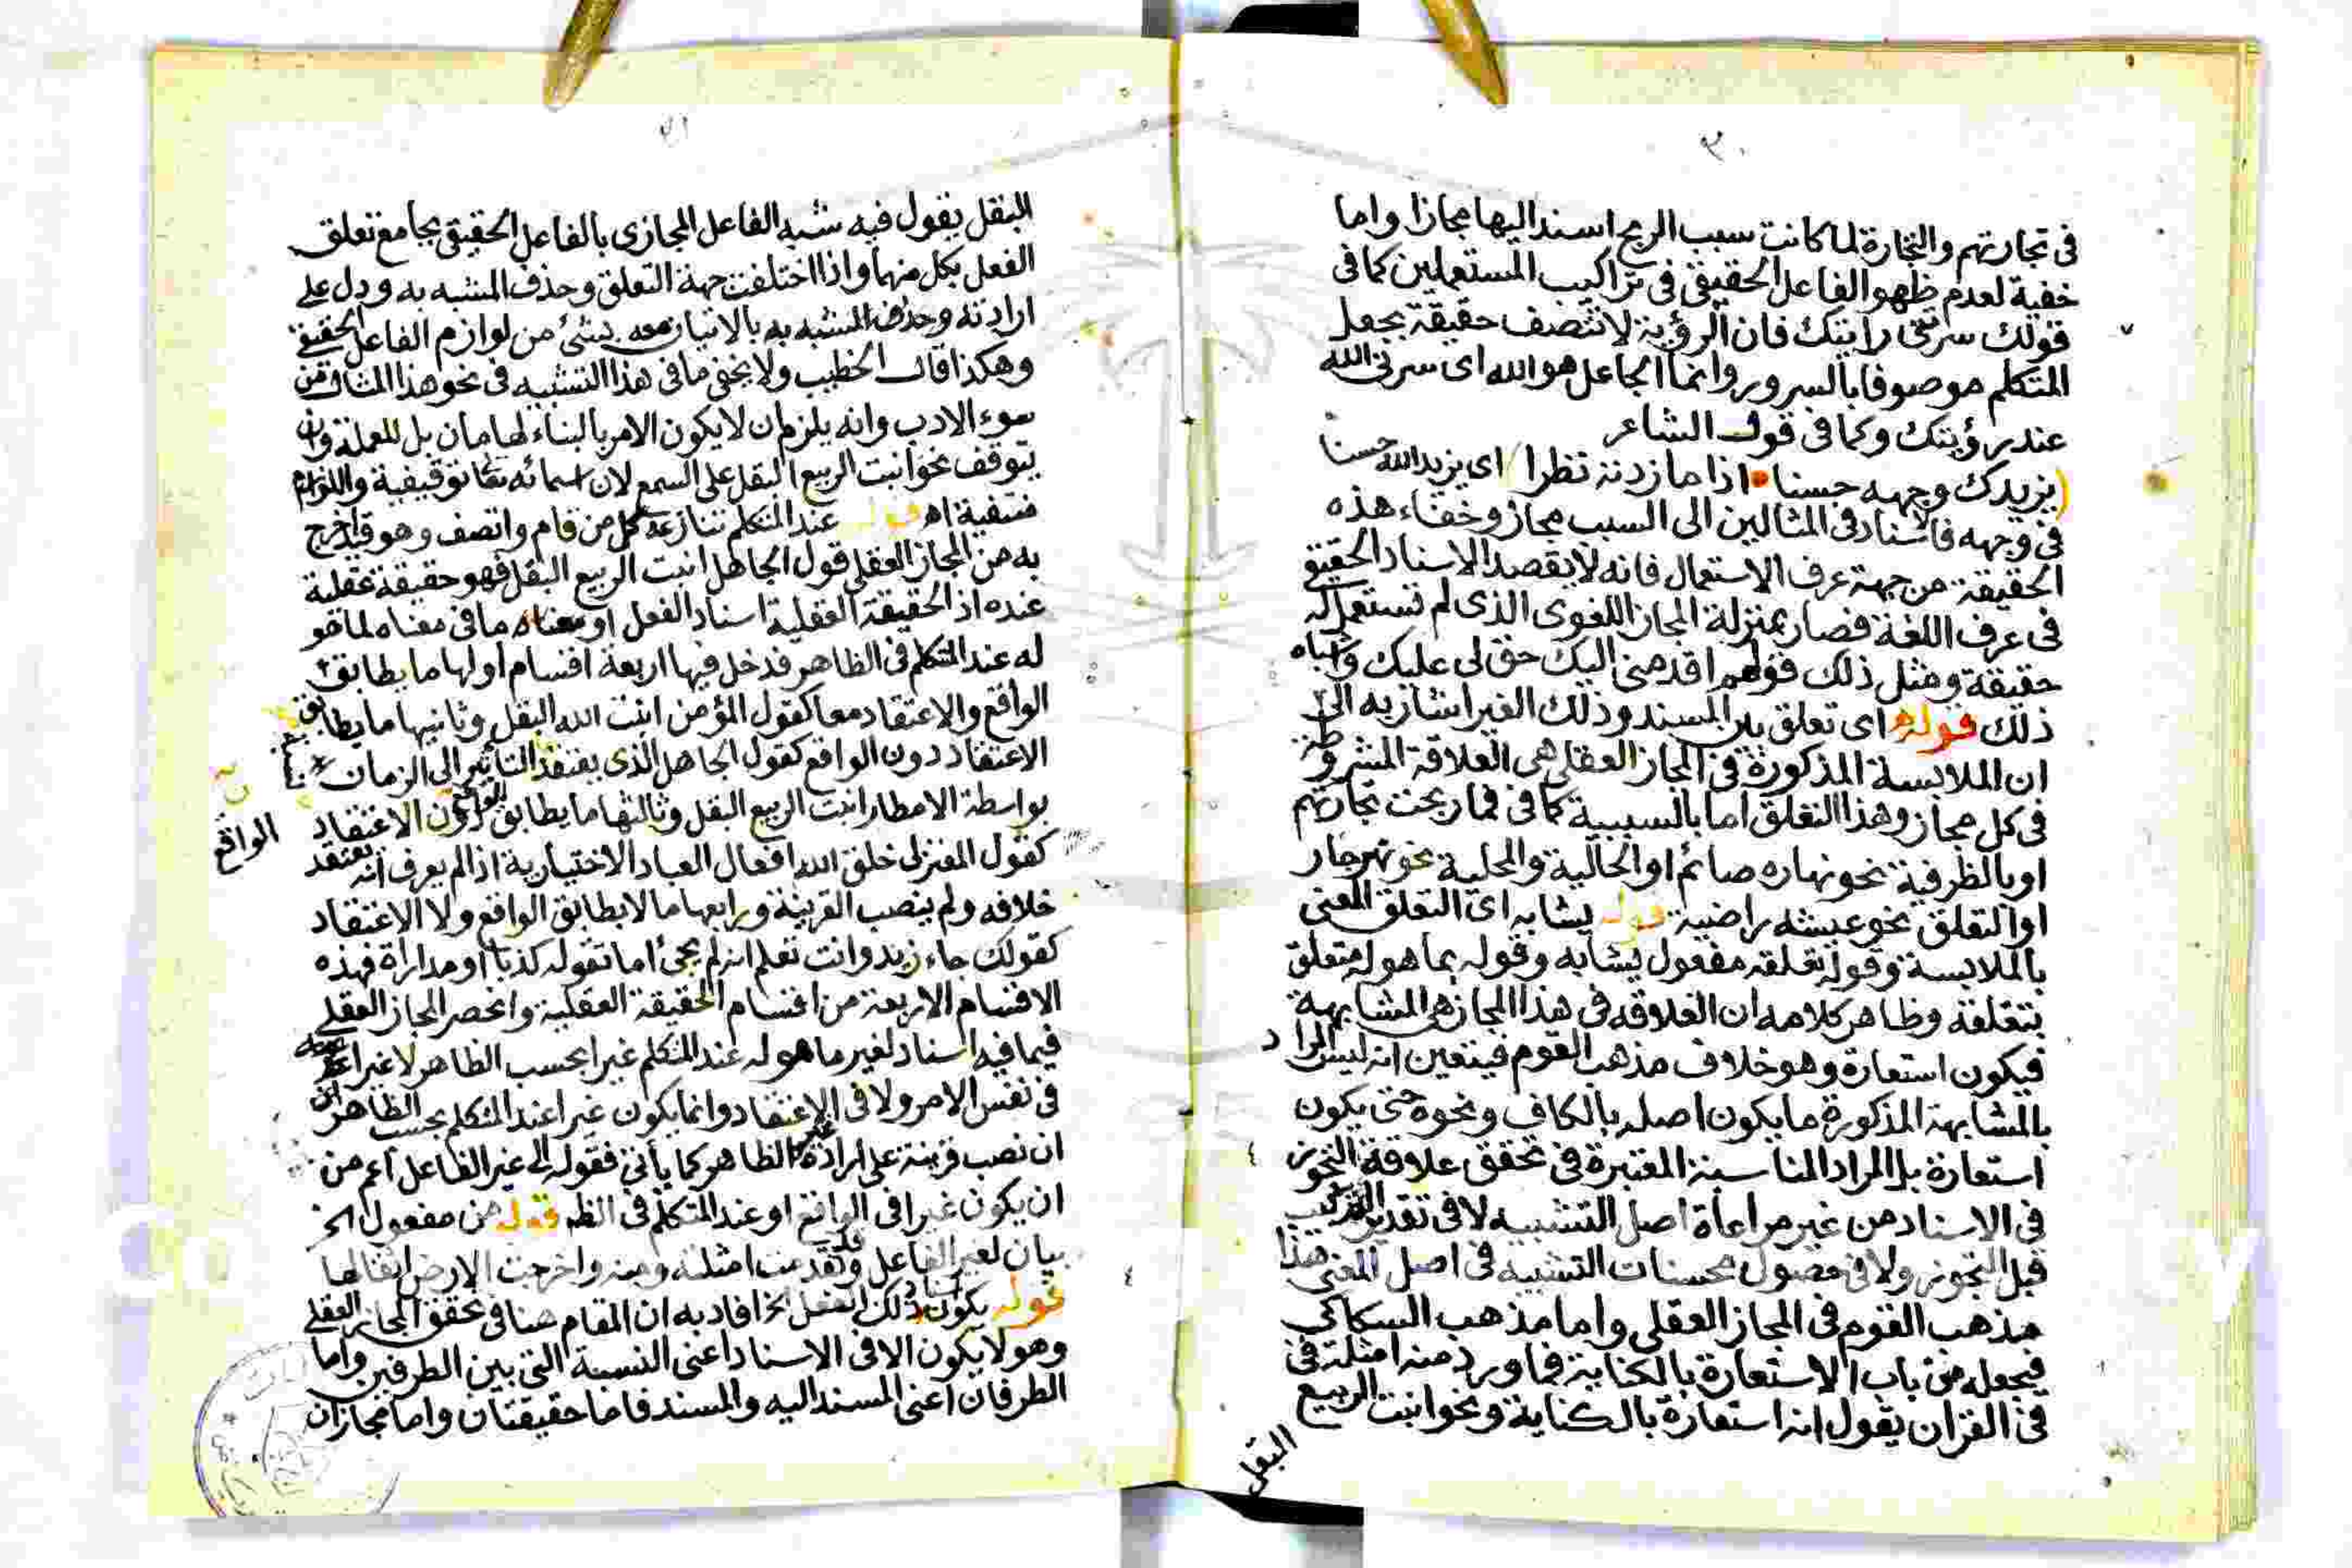 ٣٠
فى تجارتهم والتجارة لما كانت سبب الربح اسند اليها مجازا واما
خفية لعدم ظهو الفاعل الحقيقى فى تراكيب المستعملين كما فى
قولك سرتنى رايتك فان الرؤية لا تتصف حقيقة بجعل
المتكلم موصوفا بالسرور وانما الجاعل هو الله اى سرنى الله
عند رؤيتك وكما فى قول الشاعر
يزيدك وجهه حسنا اذا ما زدته نظرا اى يزيد الله حسنا
فى وجهه فالاسناد فى المثالين الى السبب مجاز وخفاء هذه
الحقيقة من جهة عرف الاستعمال فانه لا يقصد الاسناد الحقيقى
فى عرف اللغة فصار بمنزلة المجاز اللغوى الذى لم تستعمل له
حقيقة ومثل ذلك قولهم اقدمنى اليك حق لى عليك واشباه
ذلك قوله اى تعلق بلد المسند وذلك الغير اشار به الى
ان الملابسة المذكورة فى المجاز العقلى هى العلاقة المشروطة
فى كل مجاز وهذا التعلق اما بالسببية كما فى فما ربحت تجارتهم
او بالظرفية نحو نهاره صائم او الحالية والمحلية نحو نهر جار
او التعلق نحو عيشه راضية قوله يشابه اى التعلق المعنى
بالملابسة وقوله تعلقه مفعول يشابه وقوله بما هو له متعلق
بتعلقه وظاهر كلامه ان العلاقه فى هذا المجاز هى المشابهة
فيكون استعارة وهو خلاف مذهب القوم فيتعين انه ليس المراد
بالمشابهة المذكورة ما يكون اصله بالكاف ونحوه حتى يكون
استعارة بل المراد المناسبة المعتبرة فى تحقق علاقة التجوز
فى الاسناد من غير مراعاة اصل التشبيه لا فى تقدير التركيب
قبل التجوز ولا فى حصول محسنات التشبيه فى اصل المعنى هذا
مذهب القوم فى المجاز العقلى واما مذهب السكاكى
فيجعله من باب الاستعارة بالكناية فما ورد منه امثلة فى
فى القران يقول انه استعارة بالكناية ونحو انبت الربيع
البقل
٣١
البقل يقول فيه شبه الفاعل المجازى بالفاعل الحقيقى بجامع تعلق
الفعل بكل منهما واذا اختلفت جهة التعلق وحذف المشبه به ودل على
ارادته وحذف المشبه به بالاتيان معه بشئ من لوازم الفاعل الحقيقى
وهكذا قال الخطيب ولا يخفى ما فى هذا التشبيه فى نحو هذا المثال من
سوء الادب وانه يلزم ان لا يكون الامر بالبناء لهامان بل للعملة وان
يتوقف نحو انبت الربيع البقل على السمع لان اسمائه تعا توقيفية واللوازم
منتفية اه قوله عند المتكلم تنازعه كل من قام واتصف وهو قيد اخرج
به من المجاز العقلى قول الجاهل انبت الربيع البقل فهو حقيقة عقلية
عنده اذ الحقيقة العقلية اسناد الفعل او معناه ما فى معناه لما هو
له عند المتكلم فى الظاهر فدخل فيها اربعة اقسام اولها ما يطابق
الواقع والاعتقاد معا كقول المؤمن انبت الله البقل وثانيها ما يطابق
الاعتقاد دون الواقع كقول الجاهل الذى يعتقد التأثير الى الزمان
بواسطة الامطار انبت الربيع البقل وثالثها ما يطابق الواقع دون الاعتقاد
الواقع
كقول المعتزلى خلق الله افعال العباد الاختيارية اذا لم يعرف انه يعتقد
خلافه ولم ينصب القرينة ورابعها ما لا يطابق الواقع ولا الاعتقاد
كقولك جاء زيد وانت تعلم انه لم يجئ اما تقوله كذبا او مداراة فهذه
الاقسام الاربعة من اقسام الحقيقة العقلية وانحصر المجاز العقلى
فيما فيه اسناد لغير ما هو له عند المتكلم غيرا بحسب الظاهر لا غيرا عنه
فى نفس الامر ولا فى الاعتقاد وانما يكون غيرا عند المتكلم بحسب الظاهر ان
ان نصب قرينة على ارادة غير الظاهر كما يأتى فقوله الى غير الفاعل اعم من
ان يكون غيرا فى الواقع او عند المتكلم فى الظه قوله من مفعول الخ
بيان لغير الفاعل وقد تقدمت امثلته ومنه واخرجت الارض اثقالها
قوله يكون اسناد ذلك الفعل الخ افاد به ان المقام هنا فى تحقق المجاز العقلى
وهو لا يكون الا فى الاسناد اعنى النسبة التى بين الطرفين واما
الطرفان اعنى المسند اليه والمسند فاما حقيقتان واما مجازان